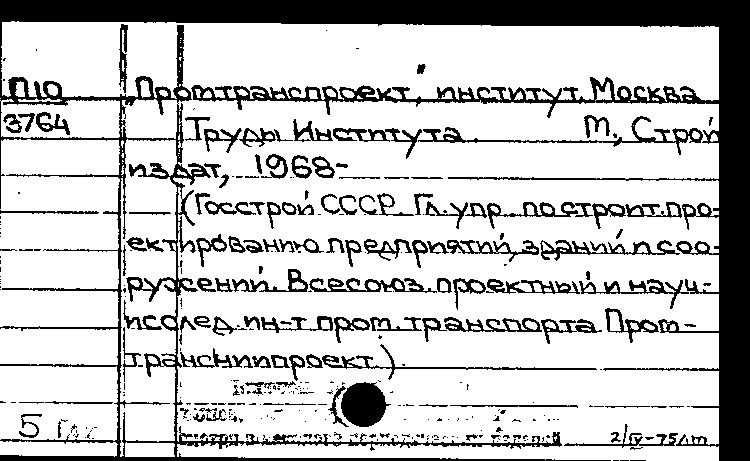 П10 „Промтранспроект", институт. Москва
3764 Труды Института. М., Строй
издат, 1968-
(Госстрой СССР. Гл. упр. по строит. про-
ектированию предприятий, зданий и соо-
ружений. Всесоюз. проектный и науч.-
исслед. ин-т пром. транспорта Пром-
трансниипроект.)
5
2/IV-75